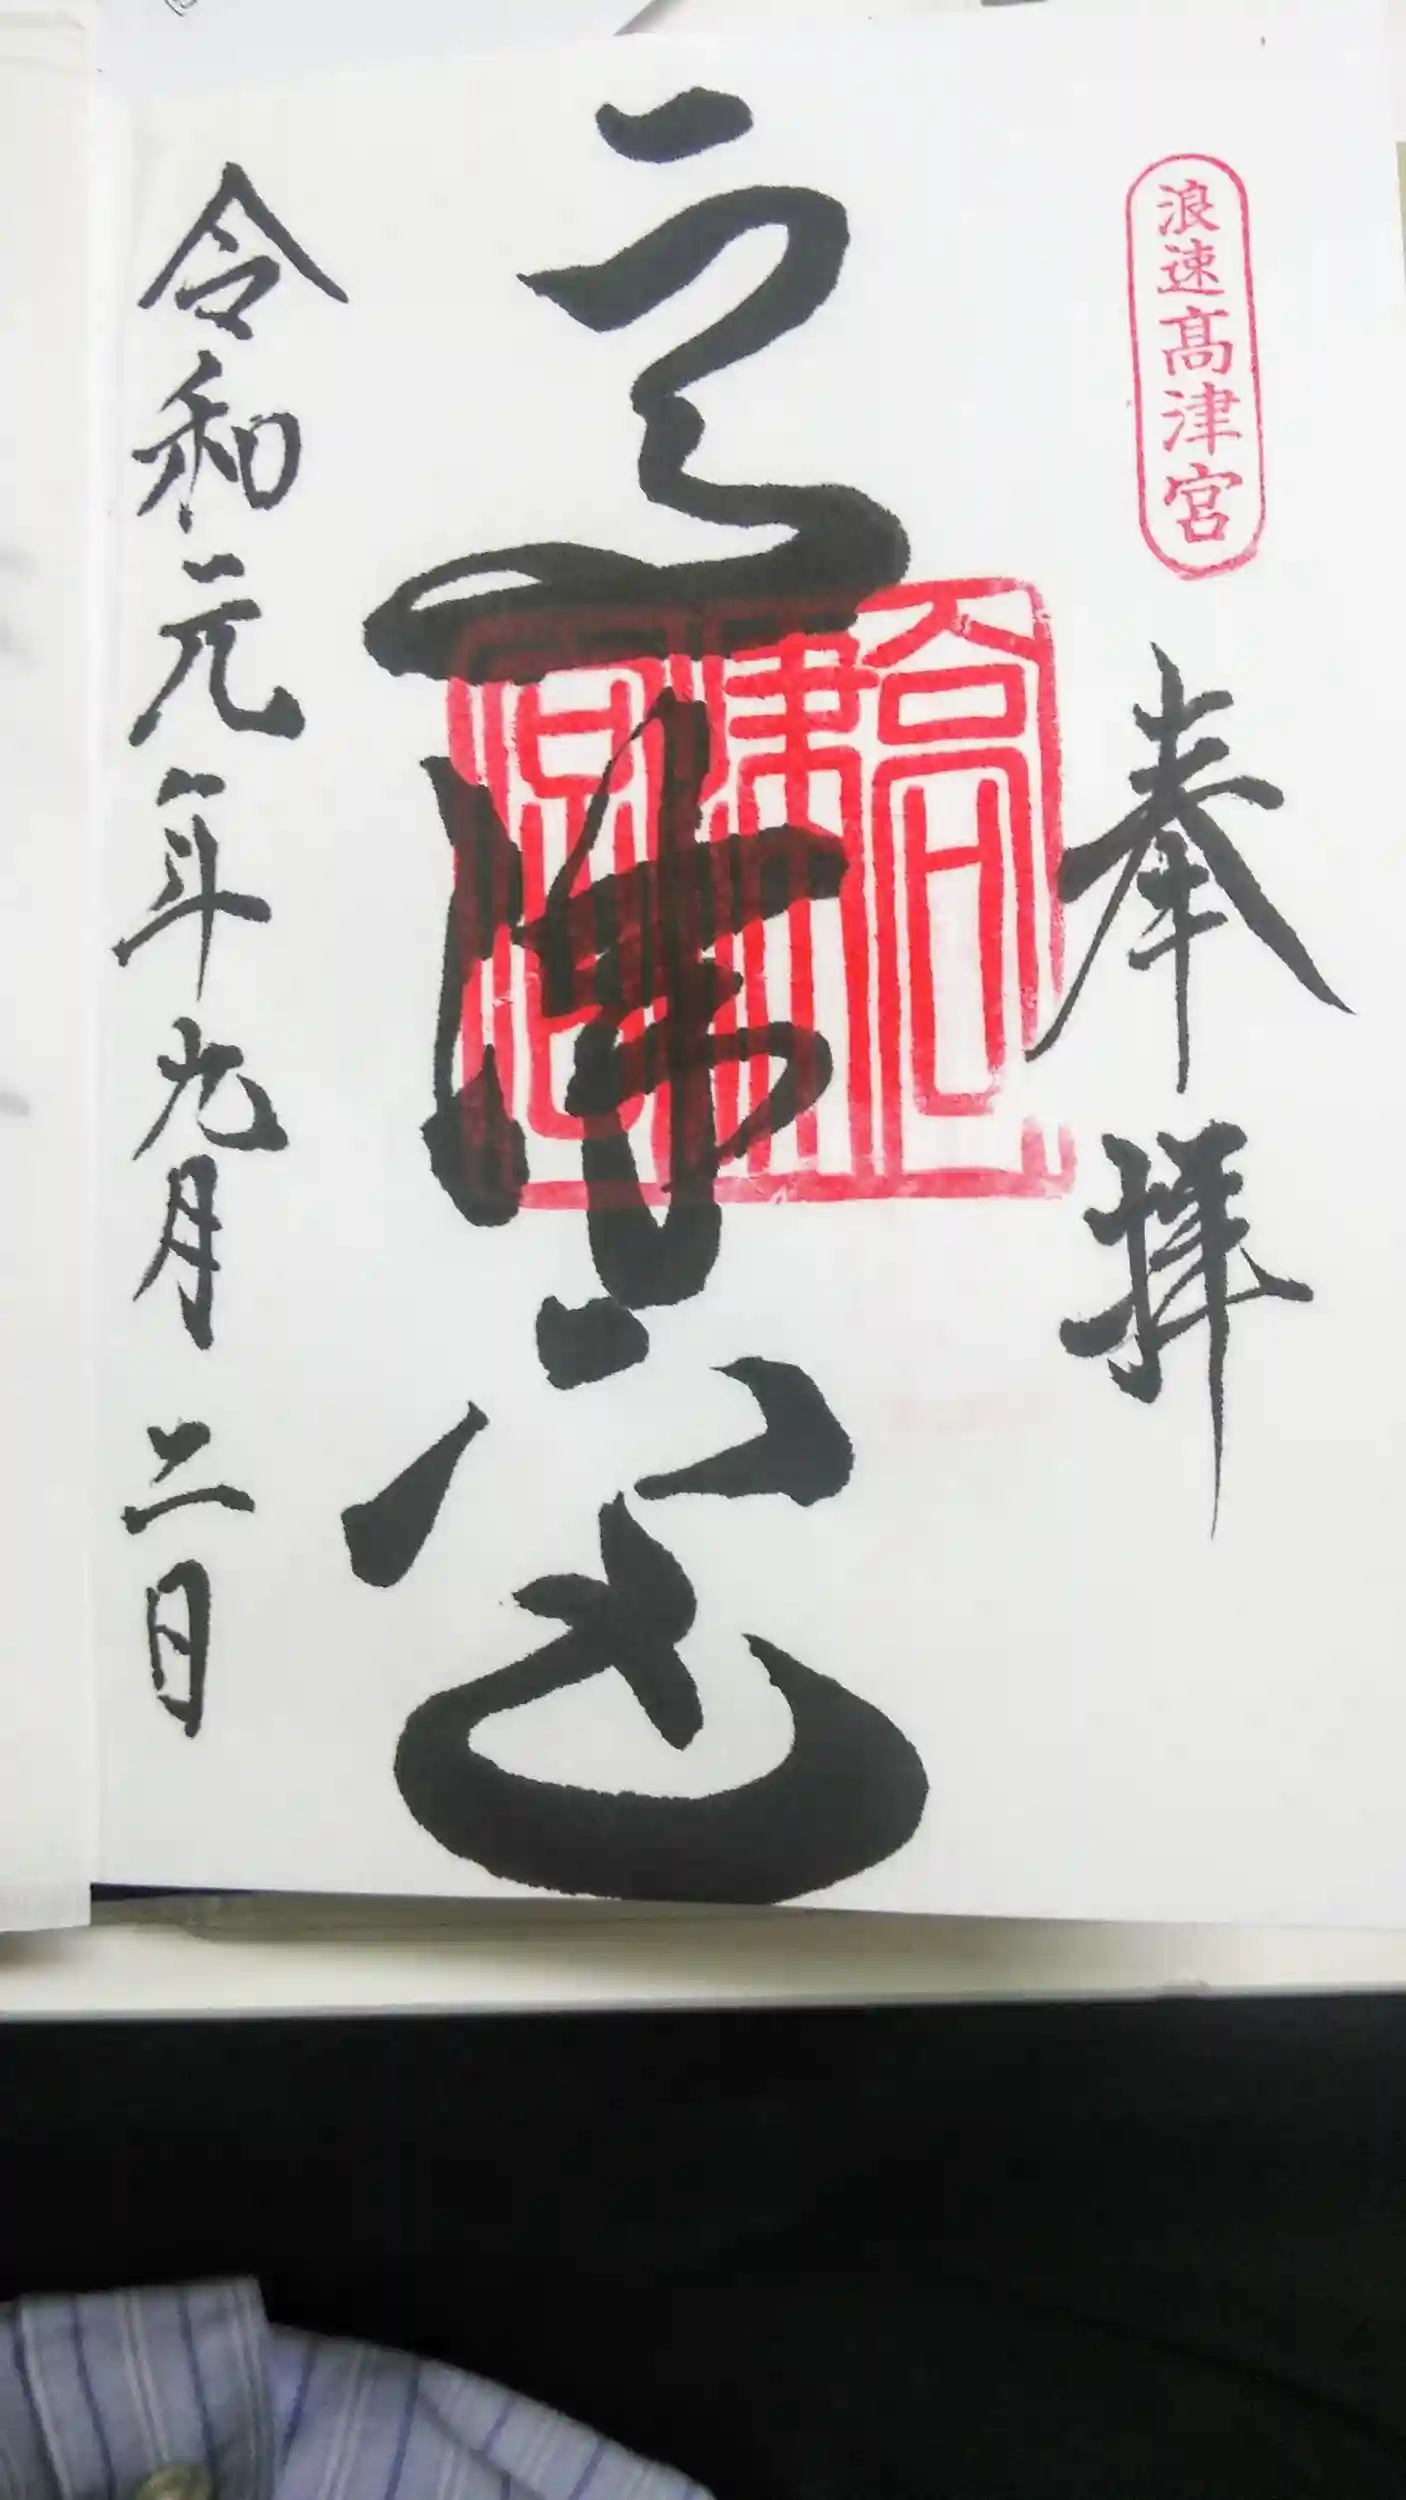 浪速高津宮
奉拝
高津宮
高津宮
令和元年九月二日